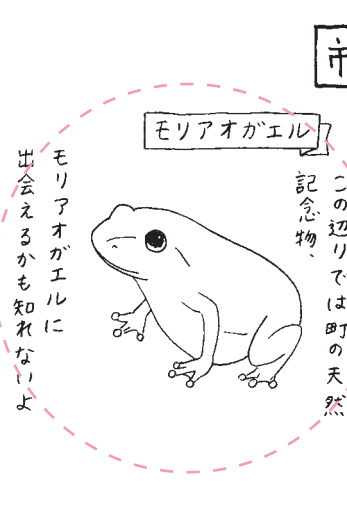 市
モリアオガエル
この辺りでは町の天然
記念物、
モリアオガエルに
出会えるかも知れないよ